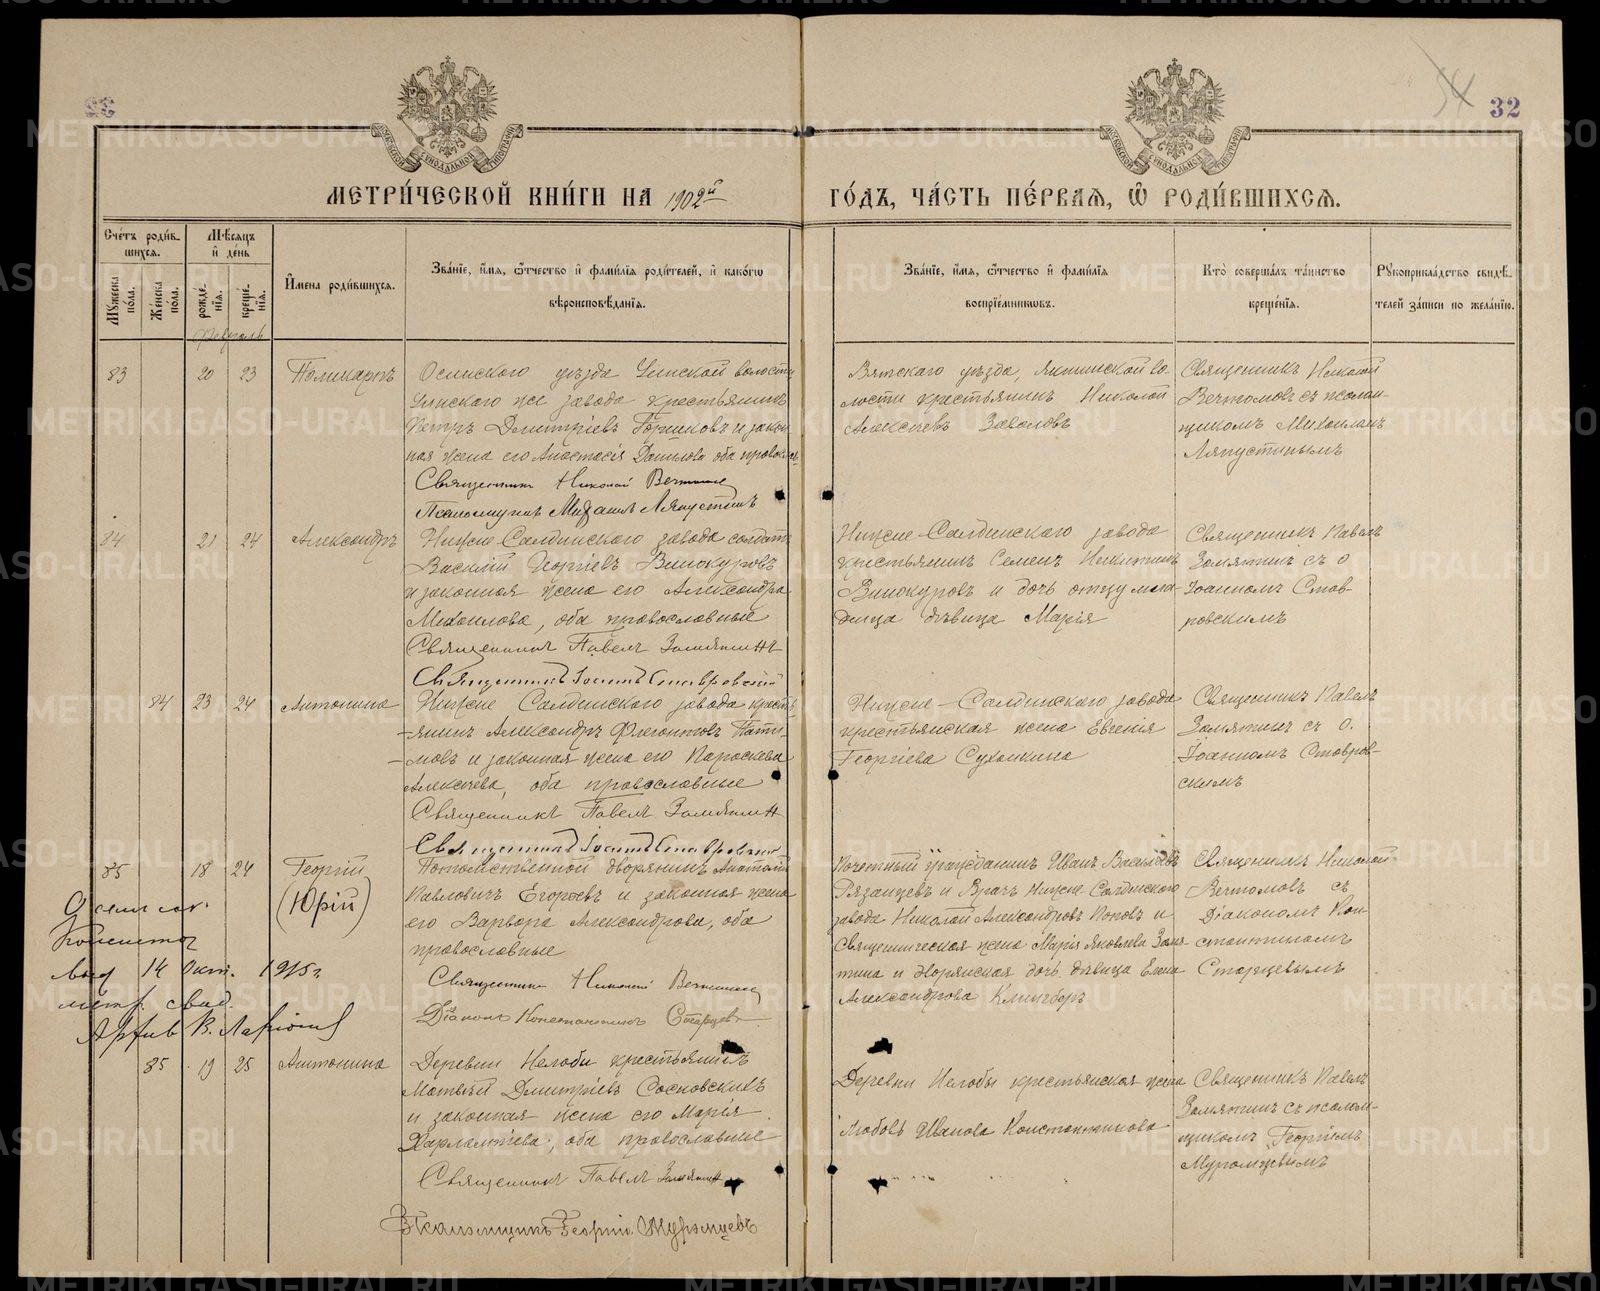 32
МЕТРИ́ЧЕСКОЙ КНИ́ГИ НА 1902й ГО́ДЪ, ЧА́СТЬ ПЕ́РВАѦ, Ѡ҆ РОДИ́ВШИХСѦ.
Сче́тъ роди́в-
шихсѧ.
Мꙋ́жеска по́ла.
Же́нска по́ла.
Мѣ́сѧцъ и҆ де́нь
рожде́нїѧ.
креще́нїѧ.
И҆мена роди́вшихсѧ.
Зва́нїе, и҆́мѧ, ѻ҆́тчество и҆ фами́лїѧ роди́телей, и҆ како́гѡ
вѣроисповѣ́данїѧ.
Зва́нїе, и҆́мѧ, ѻ҆́тчество и҆ фами́лїѧ
воспрїе́мниковъ.
Кто̀ соверша́лъ та́инство
креще́нїѧ.
Рꙋкоприкла́дство свидѣ́-
телей за́писи по жела́нїю.
Февраль
83 20 23 Поликарпъ
Осинскаго уѣзда Уинской волости
Уинскаго же завода крестьянинъ
Петръ Дмитріевъ Горшковъ и закон-
ная жена его Анастасія Данилова оба православ.
Священникъ Николай
Псаломщикъ Михаилъ Ляпустинъ
Вятскаго уѣзда, во-
лости крестьянинъ Николай
Алексѣевъ
Священникъ Николай
съ псалом-
щикомъ Михаиломъ
Ляпустинымъ
84 21 24 Александръ
Нижне-Салдинскаго завода солдатъ
Василій Георгіевъ Винокуровъ
и законная жена его Александра
Михаилова, оба православные
Священникъ Павелъ Замятинъ
Священникъ Іоаннъ Ставровскій
Нижне-Салдинскаго завода
крестьянинъ Семенъ Никитинъ
Винокуровъ и дочь отцу мла-
денца дѣвица Марія
Священникъ Павелъ
Замятинъ съ о.
Іоанномъ Став-
ровскимъ
84 23 24 Антонина
Нижне Салдинскаго завода кресть-
янинъ Александръ Флегонтовъ Пати-
мовъ и законная жена его Параскева
Алексѣева, оба православные
Священникъ Павелъ Замятинъ
Священникъ Іоаннъ Ставровскій
Нижне-Салдинскаго завода
крестьянская жена Евгенія
Георгіева Сухонкина
Священникъ Павелъ
Замятинъ съ о.
Іоанномъ Ставров-
скимъ
85 18 24 Георгій
(Юрій)
Потомственный дворянинъ Анатолій
Павловичъ Егоровъ и законная жена
его Варвара Александрова, оба
православные
Священникъ Николай
Діаконъ Константинъ Старцевъ
Почетный гражданинъ Иванъ Васильевъ
Рязанцевъ и Врачъ Нижне-Салдинскаго
завода Николай Александровъ Поповъ и
Священническая жена Марія Яковлева Замя-
тина и дворянская дочь дѣвица Елена
Александрова Клингберъ
Священникъ Николай
съ
Діакономъ Кон-
стантиномъ
Старцевымъ
выд 14 Окт. 1915 г.
метр. свид.
85 19 25 Антонина
Деревни Нелобы крестьянинъ
Матвѣй Дмитріевъ Сосновскихъ
и законная жена его Марія
Харлампіева, оба православные
Священникъ Павелъ Замятинъ
Псаломщикъ Георгій Муромцевъ
Деревни Нелобы крестьянская жена
Любовь Иванова Константинова
Священникъ Павелъ
Замятинъ съ псалом-
щикомъ Георгіемъ
Муромцевымъ